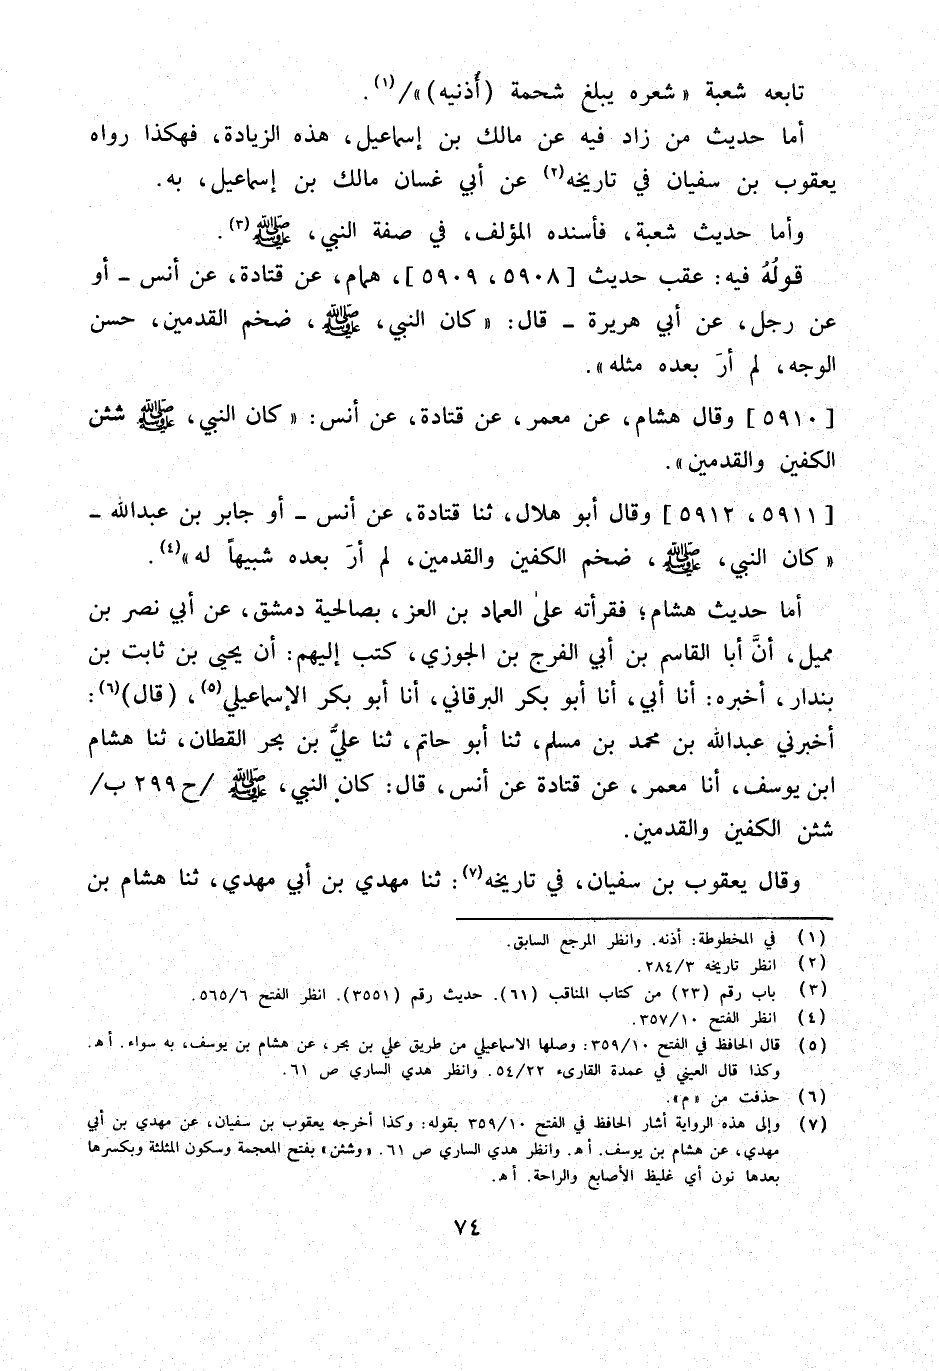 تابعه شعبة «شعره يبلغ شحمة (أُذنيه)»/(١).
أما حديث من زاد فيه عن مالك بن إسماعيل، هذه الزيادة، فهكذا رواه
يعقوب بن سفيان في تاريخه(٢) عن أبي غسان مالك بن إسماعيل، به.
وأما حديث شعبة، فأسنده المؤلف، في صفة النبي، ﷺ(٣).
قولُهُ فيه: عقب حديث [٥٩٠٨، ٥٩٠٩]، همام، عن قتادة، عن أنس ـ أو
عن رجل، عن أبي هريرة ـ قال: «كان النبي، ﷺ، ضخم القدمين، حسن
الوجه، لم أرَ بعده مثله».
[٥٩١٠] وقال هشام، عن معمر، عن قتادة، عن أنس: «كان النبي، ﷺ شثن
الكفين والقدمين».
[٥٩١١، ٥٩١٢] وقال أبو هلال، ثنا قتادة، عن أنس ـ أو جابر بن عبدالله ـ
«كان النبي، ﷺ، ضخم الكفين والقدمين، لم أرَ بعده شبيهاً له»(٤).
أما حديث هشام؛ فقرأته علىٰ العماد بن العز، بصالحية دمشق، عن أبي نصر بن
مميل، أنَّ أبا القاسم بن أبي الفرج بن الجوزي، كتب إليهم: أن يحيى بن ثابت بن
بندار، أخبره: أنا أبي، أنا أبو بكر البرقاني، أنا أبو بكر الإسماعيلي(٥)، (قال)(٦):
أخبرني عبدالله بن محمد بن مسلم، ثنا أبو حاتم، ثنا عليُّ بن بحر القطان، ثنا هشام
ابن يوسف، أنا معمر، عن قتادة عن أنس، قال: كان النبي، ﷺ /ح ٢٩٩ ب/
شثن الكفين والقدمين.
وقال يعقوب بن سفيان، في تاريخه(٧): ثنا مهدي بن أبي مهدي، ثنا هشام بن
(١) في المخطوطة: أذنه. وانظر المرجع السابق.
(٢) انظر تاريخه ٢٨٤/٣.
(٣) باب رقم (٢٣) من كتاب المناقب (٦١). حديث رقم (٣٥٥١). انظر الفتح ٥٦٥/٦.
(٤) انظر الفتح ٣٥٧/١٠.
(٥) قال الحافظ في الفتح ٣٥٩/١٠: وصلها الاسماعيلي من طريق علي بن بحر، عن هشام بن يوسف، به سواء. أ هـ.
وكذا قال العيني في عمدة القارىء ٥٤/٢٢. وانظر هدي الساري ص ٦١.
(٦) حذفت من «م».
(٧) وإلى هذه الرواية أشار الحافظ في الفتح ٣٥٩/١٠ بقوله: وكذا أخرجه يعقوب بن سفيان، عن مهدي بن أبي
مهدي، عن هشام بن يوسف. أ هـ. وانظر هدي الساري ص ٦١. «وشثن» بفتح المعجمة وسكون المثلثة وبكسرها
بعدها نون أي غليظ الأصابع والراحة. أ هـ.
٧٤